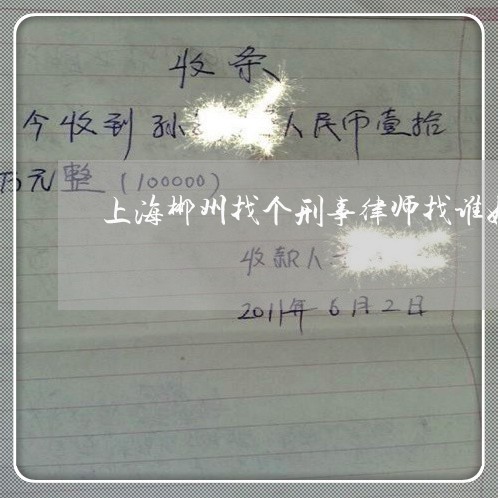 收条
今收到孙 人民币壹拾
万元整（100000）
上海郴州找个刑事律师找谁
收款人
2011年6月2日